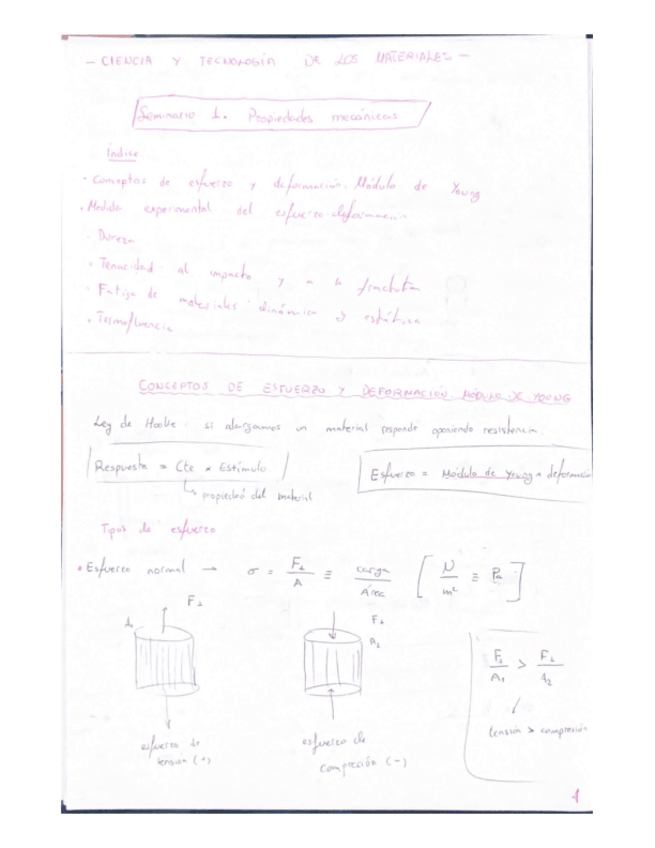 - CIENCIA Y TECNOLOGÍA DE LOS MATERIALES -
Seminario 1. Propiedades mecánicas
Índice
· Conceptos de esfuerzo y deformación. Módulo de Young
· Medida experimental del esfuerzo-deformación
- Dureza
· Tenacidad al impacto y a la fractura
- Fatiga de materiales dinámica y estática
· Termofluencia
CONCEPTOS DE ESFUERZO Y DEFORMACIÓN MÓDULO DE YOUNG
Ley de Hooke: si alargamos un material responde oponiendo resistencia.
Respuesta = Cte × Estímulo
↳ propiedad del material
Esfuerzo = Módulo de Young × deformación
Tipos de esfuerzo
· Esfuerzo normal → σ = F⊥/A ≡ carga/Área [N/m² ≡ Pa]
F⊥
F⊥
A₂
F⊥/A₁ > F⊥/A₂
tensión > compresión
esfuerzo de tensión (+)
esfuerzo de compresión (-)
1